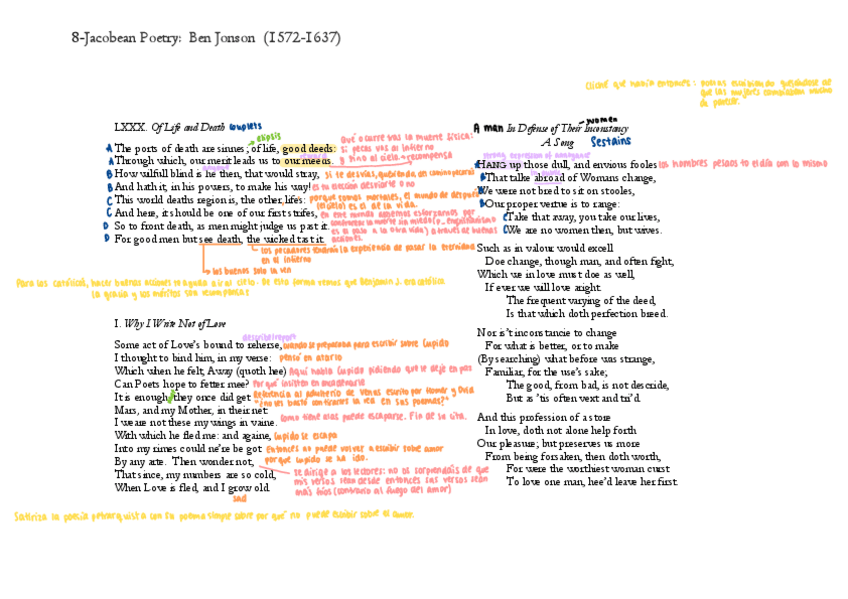 8-Jacobean Poetry: Ben Jonson (1572-1637)
Cliché que había entonces: poetas escribiendo quejándose de
que las mujeres cambiaban mucho
de parecer.
LXXX. Of Life and Death couplets
elipsis
A The ports of death are sinnes; of life, good deeds:
A Through which, our merit leads us to our meeds.
B How wilfull blind is he then, that would stray,
B And hath it, in his powers, to make his way!
C This world deaths region is, the other life's:
C And here, it should be one of our first strifes,
D So to front death, as men might judge us past it.
D For good men but see death, the wicked tast it.
Qué ocurre tras la muerte física:
si pecas vas al infierno
y si no al cielo → recompensa
si te desvías, queriendo, del camino
es tu elección desviarte o no
porque somos mortales, el mundo de después
(el cielo) es el de la vida.
en este mundo debemos esforzarnos por
acciones.
los pecadores tendrán la experiencia de pasar la eternidad
en el infierno
los buenos solo la ven
Para los católicos, hacer buenas acciones te ayuda a ir al cielo. De esta forma vemos que Benjamin J. era católico
la gracia y los méritos son recompensas
I. Why I Write Not of Love
describe/report
Some act of Love's bound to reherse, cuando se preparaba para escribir sobre Cupido
I thought to bind him, in my verse: pensó en atarlo
Which when he felt, Away (quoth hee) Aquí habla Cupido pidiendo que le deje en paz
Can Poets hope to fetter mee? Por qué insisten en encadenarle
It is enough, they once did get Referencia al adulterio de Venus escrito por Homer y Ovid
Mars, and my Mother, in their net:
I weare not these my wings in vaine. como tiene alas puede escaparse. Fin de su cita.
With which he fled me: and againe, Cupido se escapa
Into my rimes could ne're be got Entonces no puede volver a escribir sobre amor
By any arte. Then wonder not, porque Cupido se ha ido.
That since, my numbers are so cold,
When Love is fled, and I grow old.
sad
se dirige a los lectores: no os sorprendáis de que
mis versos sean desde entonces sus versos sean
más fríos (contrario al fuego del amor)
Satiriza la poesía petrarquista con su poema simple sobre por qué no puede escribir sobre el amor.
women
A man In Defense of Their Inconstancy
A Song Sestains
HANG up those dull, and envious fooles los hombres pesaos to el día con lo mismo
That talke abroad of Womans change,
We were not bred to sit on stooles,
Our proper vertue is to range:
Take that away, you take our lives,
We are no women then, but wives.
Such as in valour would excell
Doe change, though man, and often fight,
Which we in love must doe as well,
If ever we will love aright.
The frequent varying of the deed,
Is that which doth perfection breed.
Nor is't inconstancie to change
For what is better, or to make
(By searching) what before was strange,
Familiar, for the use's sake;
The good, from bad, is not descride,
But as 'tis often vext and tri'd.
And this profession of a store
In love, doth not alone help forth
Our pleasure; but preserves us more
From being forsaken, then doth worth,
For were the worthiest woman curst
To love one man, hee'd leave her first.